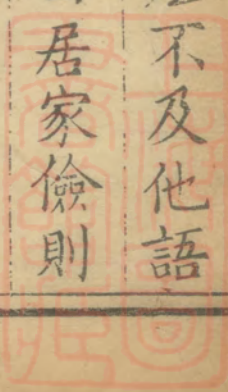 不及他語
居家儉則